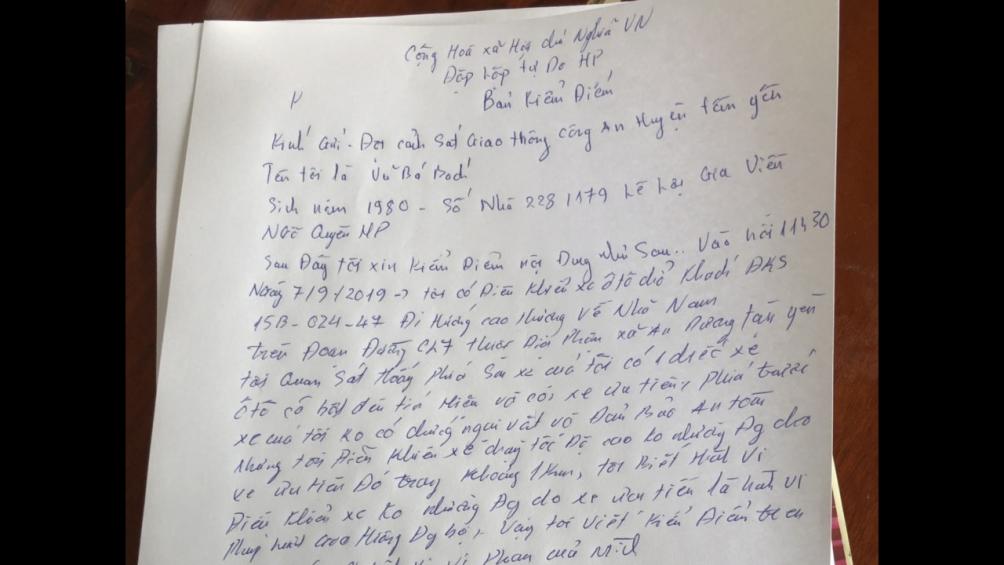 Cộng Hoà xã Hội chủ Nghĩa VN
Độc Lập tự Do HP
Bản Kiểm Điểm
Kính Gửi - Đội cảnh Sát Giao thông công An Huyện tân yên
Tên tôi là Vũ Bá Bách
Sinh năm 1980 - Số Nhà 228 1179 Lê Lợi Gia Viên
Ngô Quyền HP
Sau Đây tôi xin Kiểm Điểm nội Dung như Sau.. Vào hồi 11h30
Ngày 7/9/2019 -> tôi có Điều Khiển xe ôtô chở Khách ĐKS
15B-024-47 Đi Hướng cao thượng Về Nhã Nam
trên Đoạn Đường thuộc Địa Phận xã An Dương tân yên
tôi Quan Sát thấy Phía Sau xe của tôi có 1 chiếc xe
ôtô có bật đèn tín Hiệu và còi xe ưu tiên, Phía trước
xe của tôi ko có chướng ngại vật và Đảm Bảo An toàn
nhưng tôi Điều Khiển xe chạy tốc Độ cao ko nhường Đg cho
xe ưu tiên Đó trong Khoảng 1km, tôi Biết Hành Vi
Điều Khiển xe ko nhường Đg cho xe ưu tiên là hành vi
Đg bộ, Vậy tôi Viết Kiểm Điểm
Phạm của mình